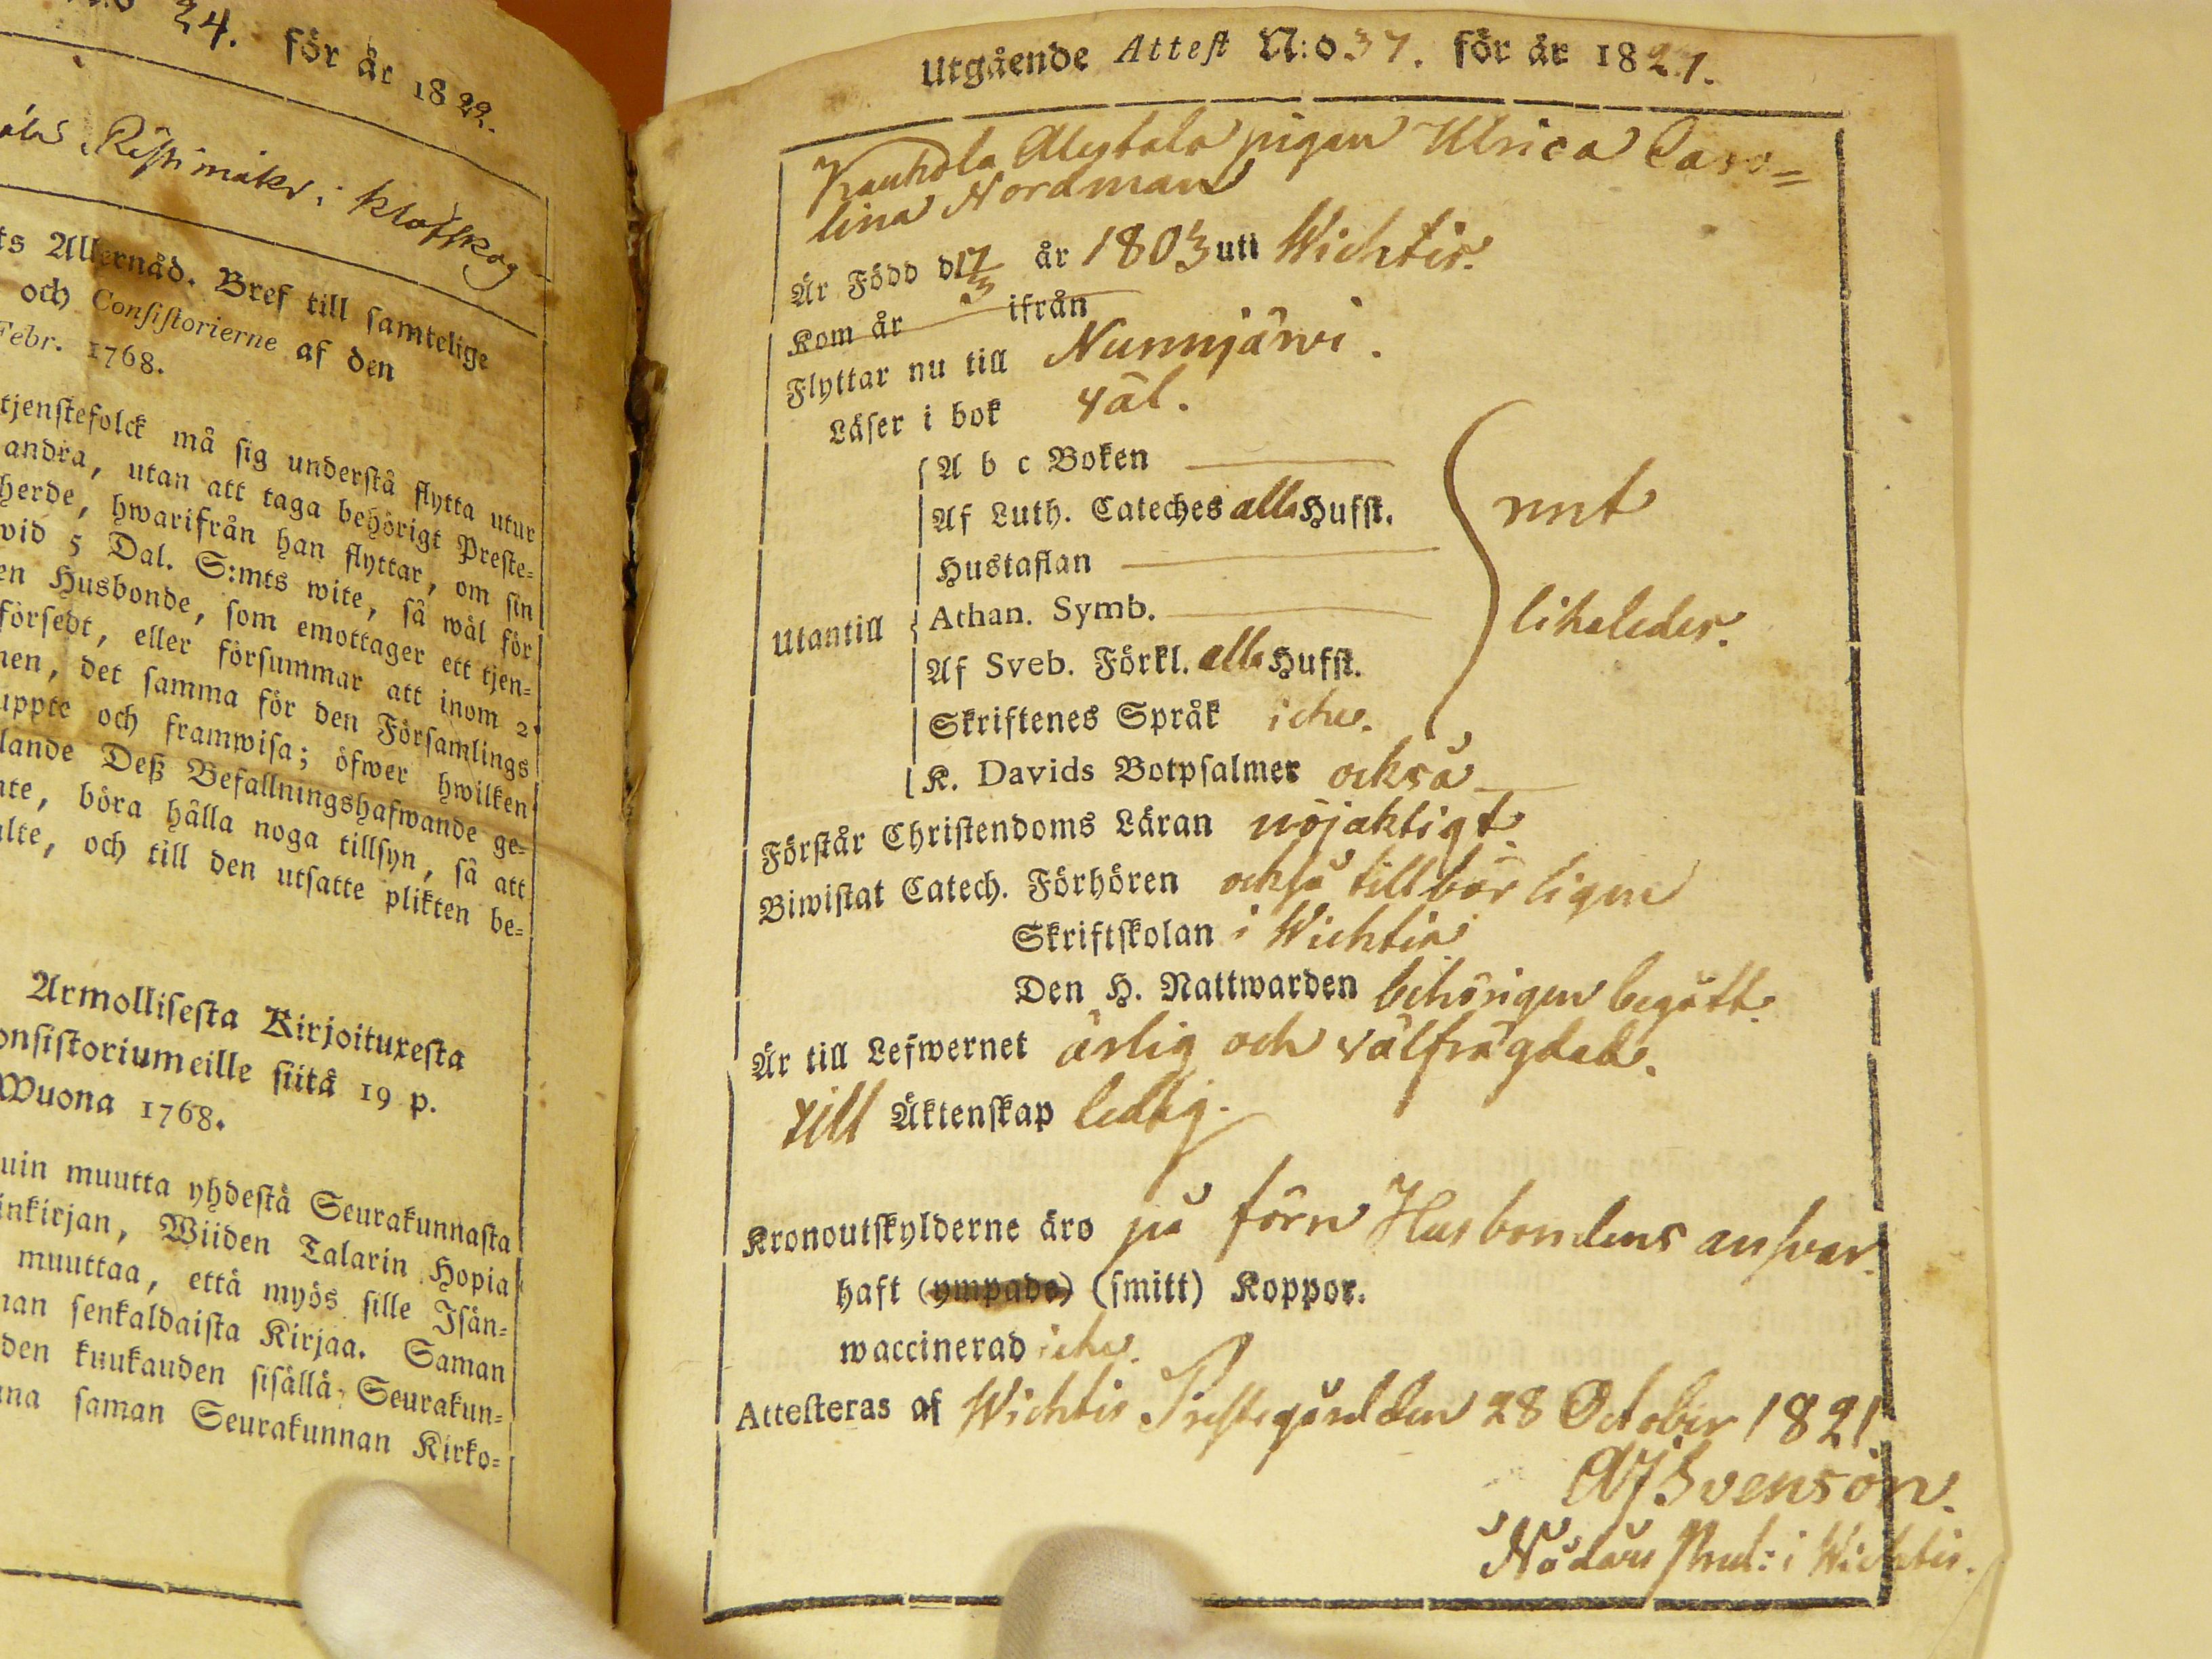 24. för år 1822.
Ristimäki i Klåfskog
ts Allernåd. Bref till samtelige
och Consistorierne af den
Febr. 1768.
tjenstefolck må sig understå flytta utur
andra, utan att taga behörigt Preste-
herde, hwarifrån han flyttar, om sin
wid 5 Dal. S:mts wite, så wäl för
en Husbonde, som emottager ett tjen-
försedt, eller försummar att inom 2
nen, det samma för den Församlings
uppte och framwisa; öfwer hwilken
lande Deß Befallningshafwande ge-
nte, böra hålla noga tillsyn, så att
alte, och till den utsatte plikten be-
Armollisesta Kirjoituxesta
onsistoriumeille siitä 19 p.
Wuona 1768.
uin muutta yhdestä Seurakunnasta
inkirjan, Wiiden Talarin Hopia
muuttaa, että myös sille Isän-
nan senkaldaista Kirjaa. Saman
den kuukauden sisällä, Seurakun-
na saman Seurakunnan Kirko-
Utgående Attest N:o 37. för år 1821.
Kauhola Alytalo pigan Ulrica Caro=
lina Nordman
Är Född d 17/3 år 1803 uti Wichtis.
Kom år ifrån
Flyttar nu till Nummjärvi.
Läser i bok väl.
A b c Boken
Af Luth. Cateches alla Hufst. rnt
Hustaflan
Utantill Athan. Symb. likaledes.
Af Sveb. Förkl. alla Hufst.
Skriftenes Språk icke.
K. Davids Botpsalmer också
Förstår Christendoms Läran nöjaktigt
Biwistat Catech. Förhören också tillbörligen
Skriftskolan i Wichtis
Den H. Nattwarden behörigen begått.
Är till Lefwernet ärlig och välfrägdad.
till Äktenskap ledig.
Kronoutskylderne äro på förn Husbondens ansvar.
haft (ympade) (smitt) Koppor.
waccinerad icke.
Attesteras af Wichtis Prestegård den 28 October 1821.
AJ Svenson.
Nådårs Pred: i Wichtis.